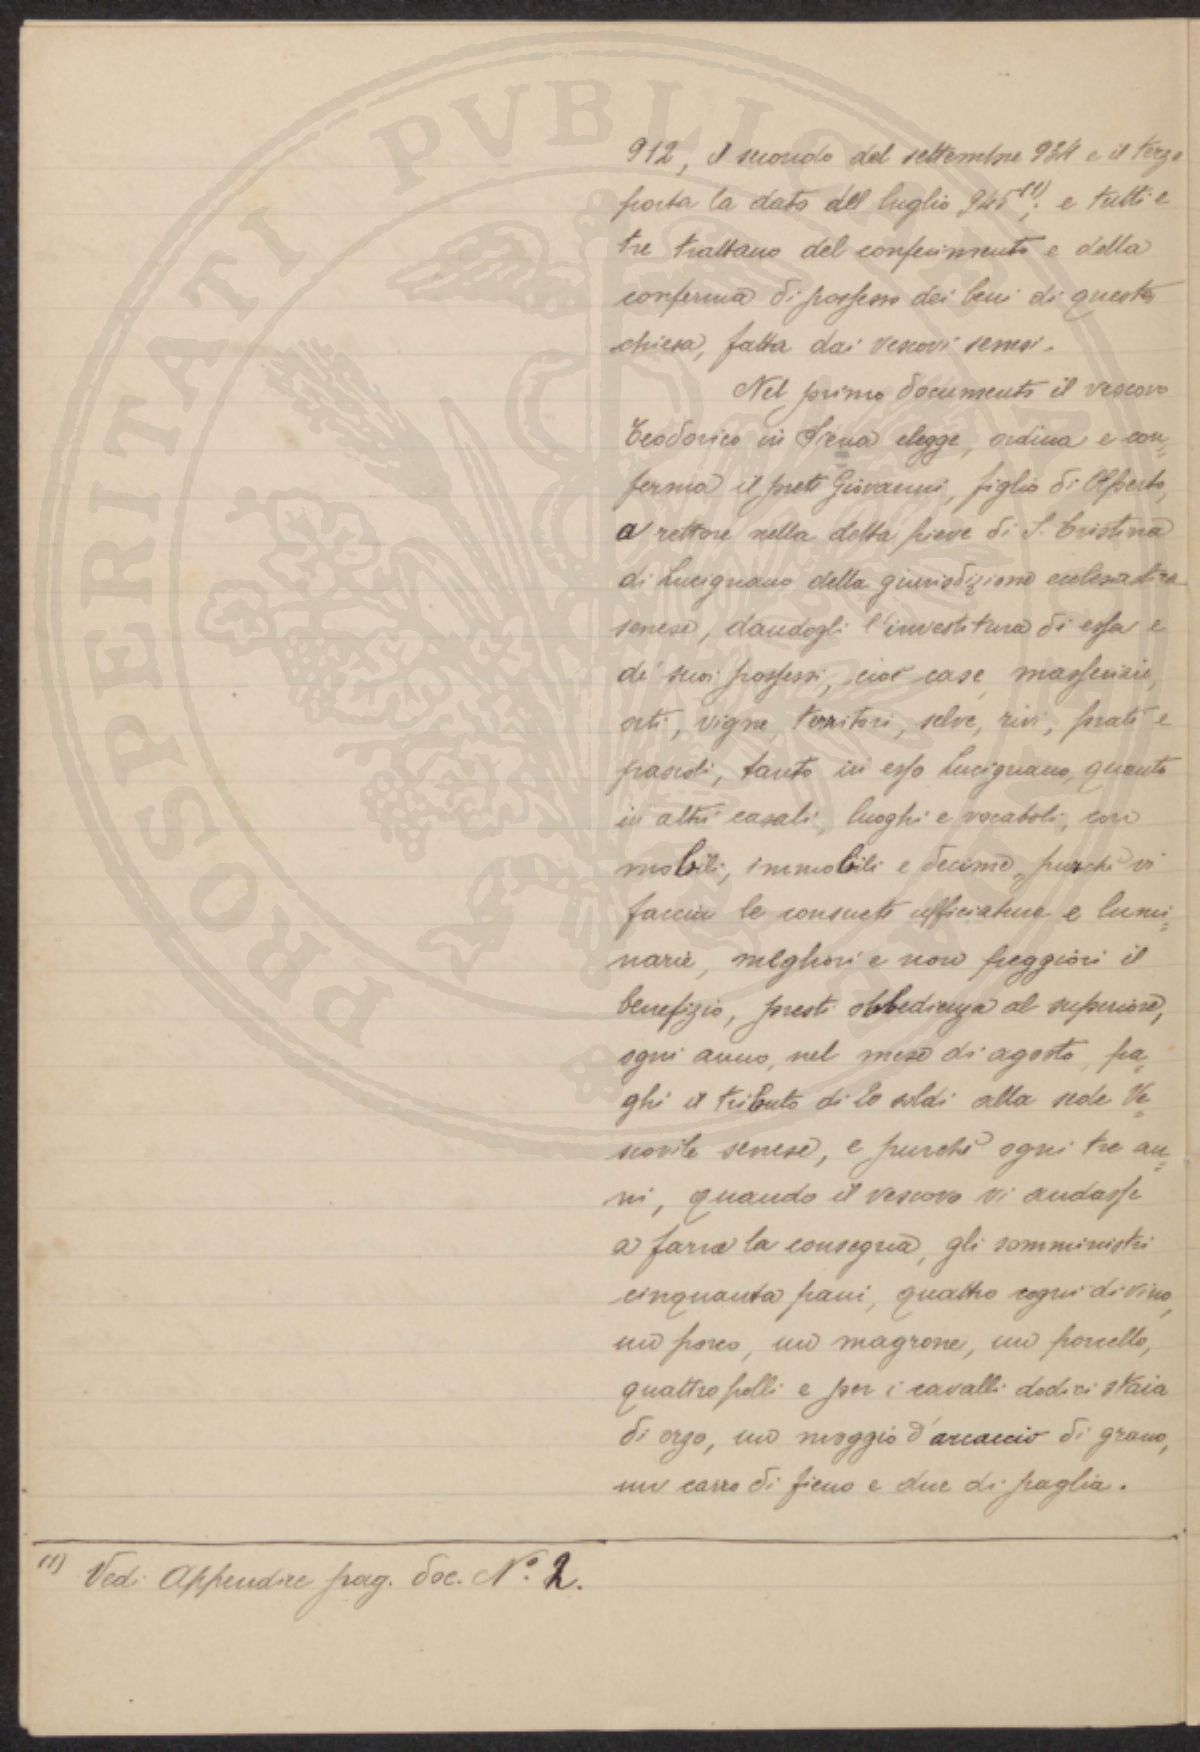 912, il secondo del settembre 934 e il terzo
porta la data del luglio 945 (1); e tutti e
tre trattano del conferimento e della
conferma di possesso dei beni di questa
chiesa, fatta dai vescovi senesi.
Nel primo documento il vescovo
Teodorico in Siena elegge, ordina e con=
ferma il prete Giovanni, figlio di
a rettore nella detta pieve di S. Cristina
di Lucignano della giurisdizione ecclesiastica
senese, dandogli l'investitura di essa e
de' suoi possessi, cioè case, masserizie,
orti, vigne, territori, selve, rivi, prati e
pascoli, tanto in esso Lucignano, quanto
in altri casali, luoghi e vocaboli, con
mobili, immobili e decime, purchè vi
faccia le consuete ufficiature e lumi=
narie, meglori e non peggiori il
benefizio, presti obbedienza al superiore,
ogni anno, nel mese di agosto, pa=
ghi il tributo di 20 soldi alla sede Ve=
scovile senese, e purchè ogni tre an=
ni, quando il vescovo vi andasse
a farne la consegna, gli somministri
cinquanta pani, quattro cogni di vino,
un porco, un magrone, un porcello,
quattro polli e per i cavalli dodici staia
di orzo, un moggio d'arcaccio di grano,
un carro di fieno e due di paglia.
(1) Vedi Appendice pag. doc. N.° 2.
PROSPERITATI PVBLICAE